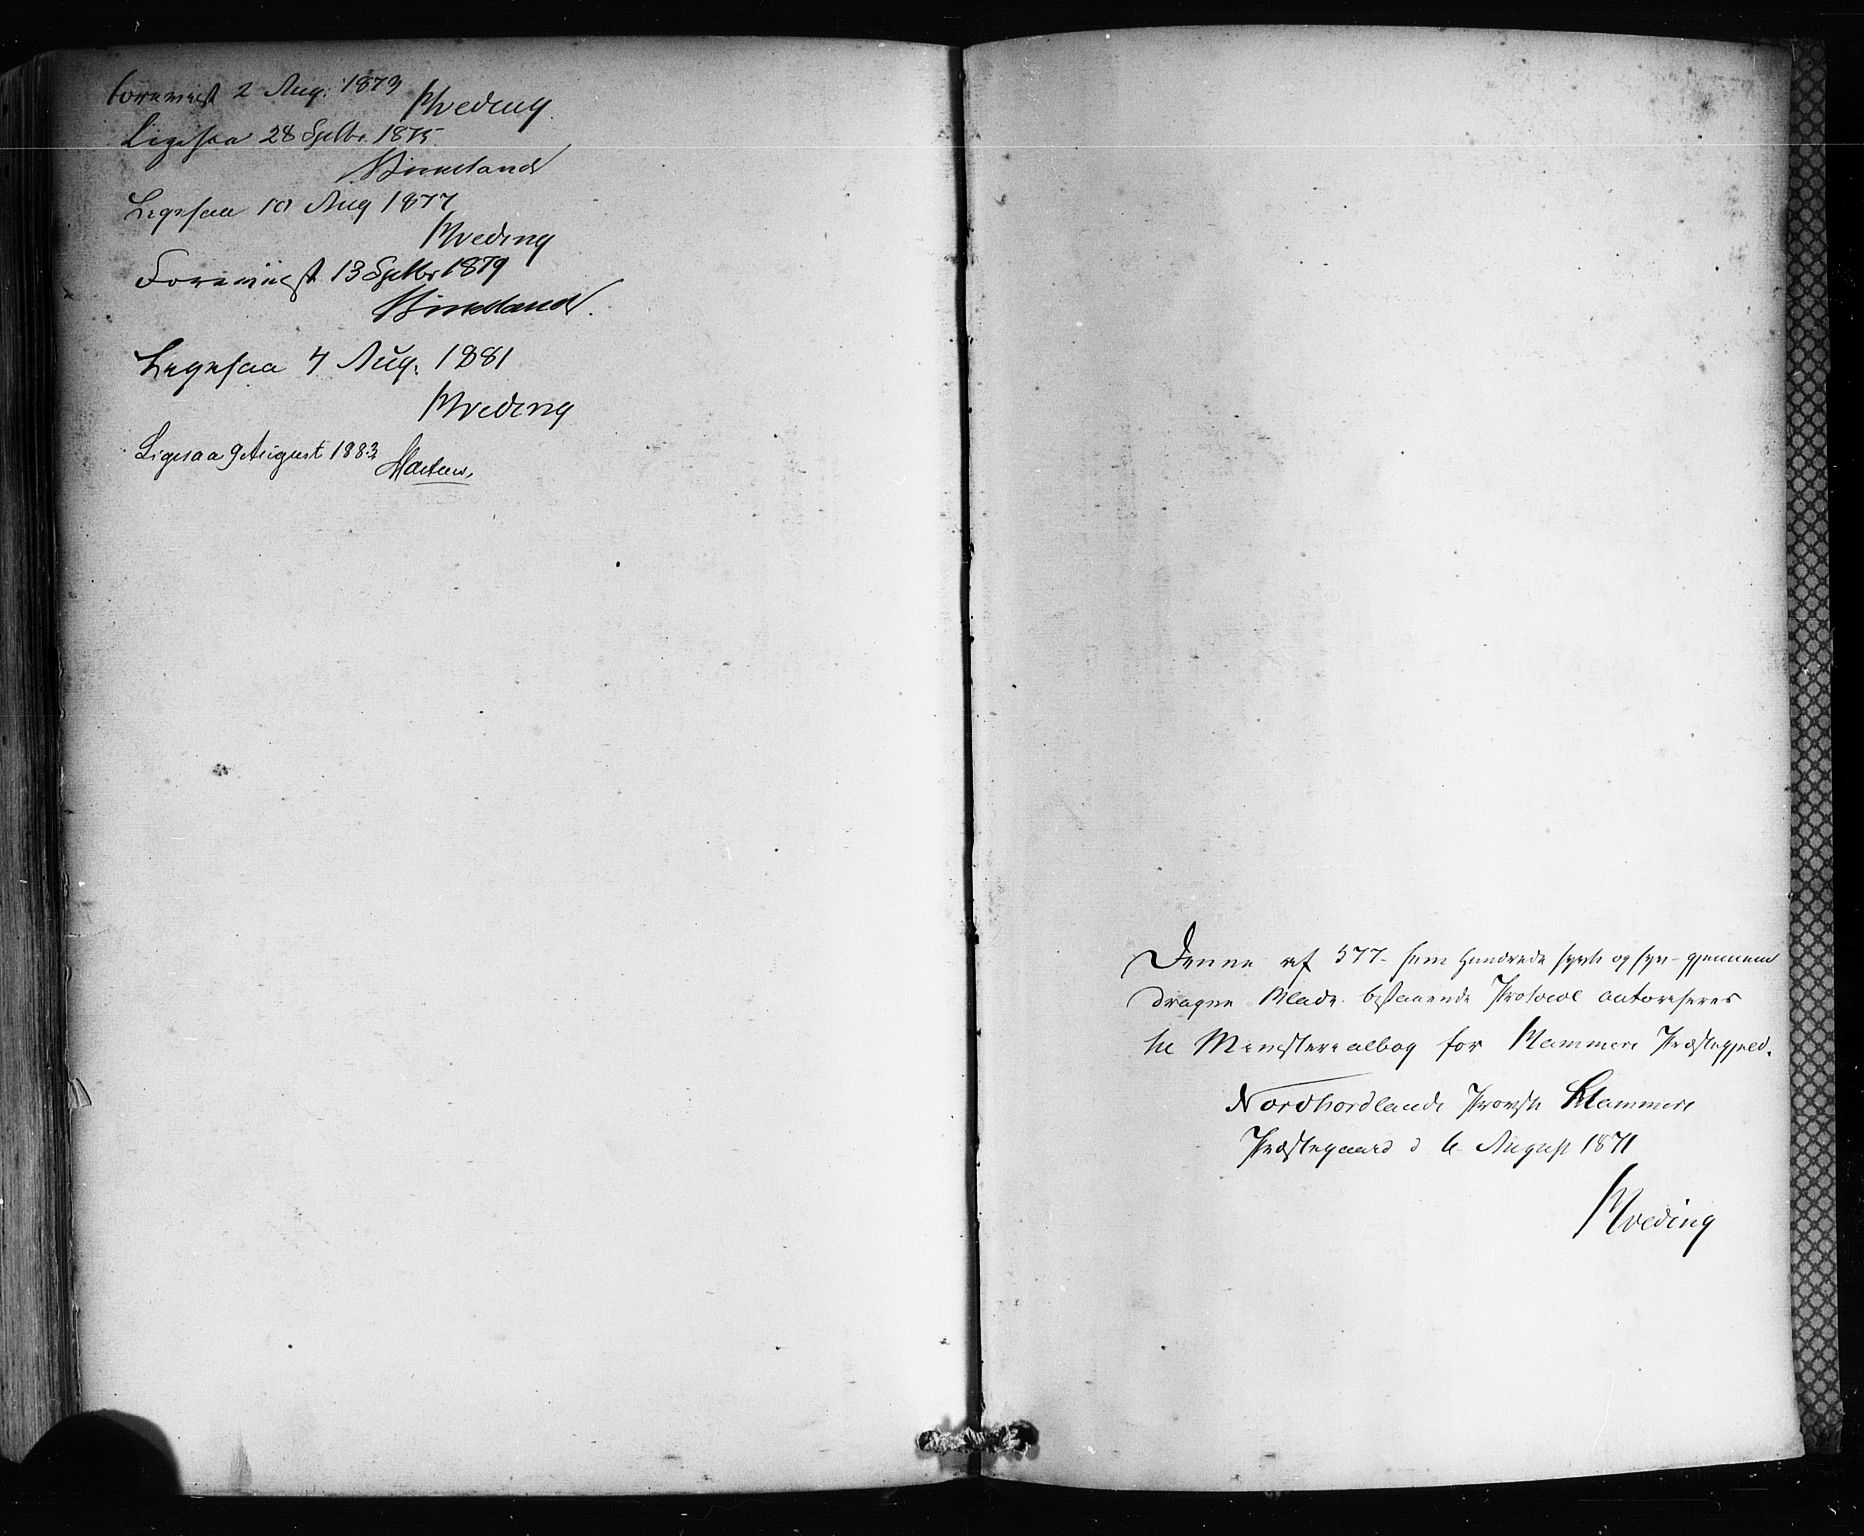 Foreviist 2 Aug. 1873
Wreding
Ligesaa 28 Septbr. 1875.
Birkeland
Ligesaa 10 Aug 1877
Wreding
Foreviist 13 Septbr 1879
Birkeland.
Ligesaa 4 Aug. 1881
Wreding
Ligesaa 9 August 1883
Denne af 577- fem hundrede sytti og syv- gjennem
dragne Blade bestaaende Protocol autoriseres
til Ministerialbog for Hammers Præstegjeld.
Nordhordlands Provsti Hammers
Præstegaard d 6 August 1871
Wreding